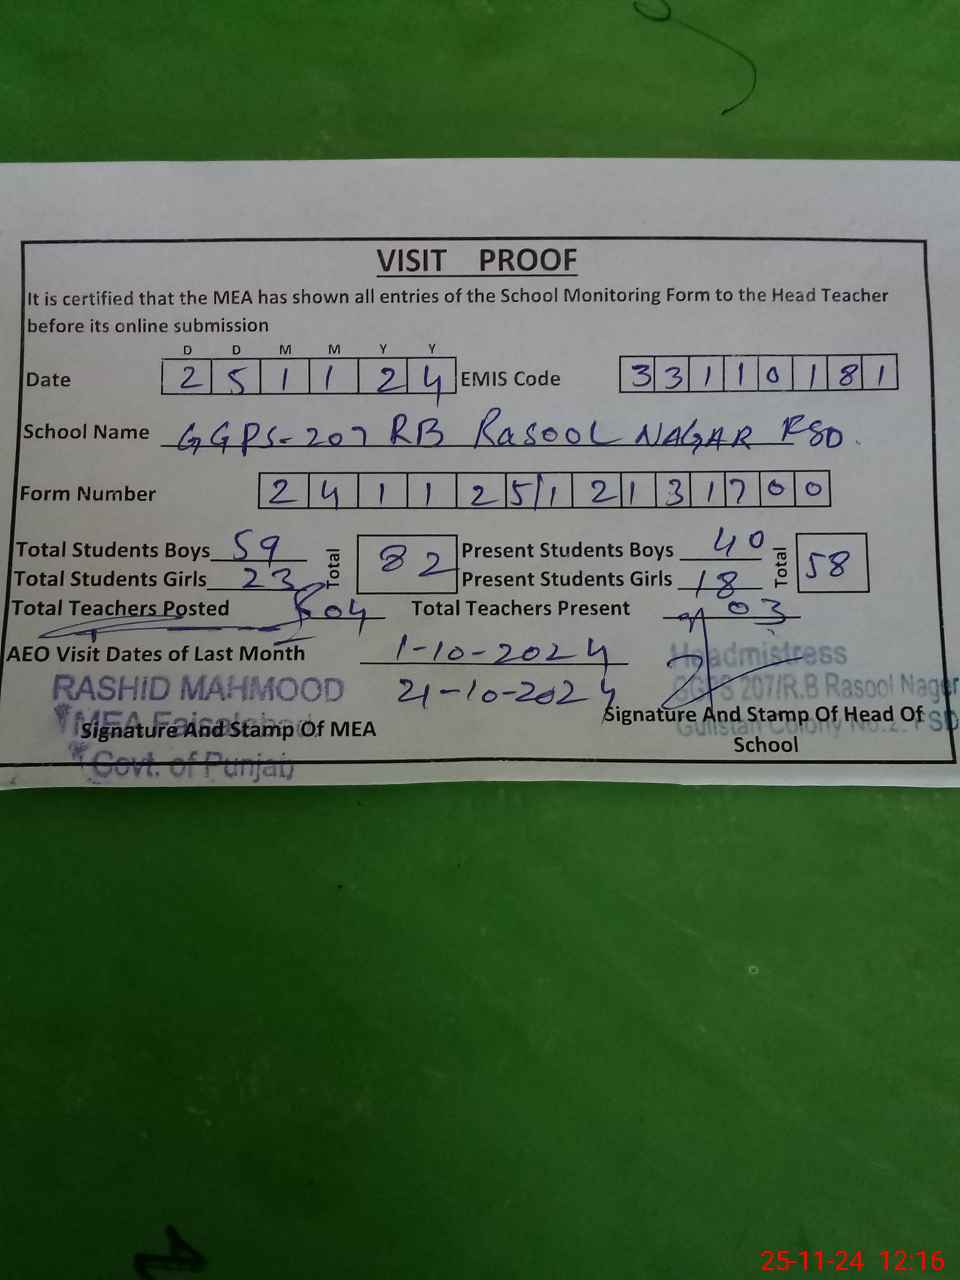 VISIT PROOF
It is certified that the MEA has shown all entries of the School Monitoring Form to the Head Teacher
before its online submission
D D M M Y Y
Date 2 5 1 1 2 4 EMIS Code 3 3 1 1 0 1 8 1
School Name GGPS-207 RB RASOOL NAGAR FSD.
Form Number 2 4 1 1 2 5 1 2 1 3 1 7 0 0
Total Students Boys 59 Total 82 Present Students Boys 40 Total 58
Total Students Girls 23 Present Students Girls 18
Total Teachers Posted 04 Total Teachers Present 03
AEO Visit Dates of Last Month 1-10-2024
21-10-2024
Headmistress
GGPS 207/R.B Rasool Nager
Gulistan Colony No.2. FSD
RASHID MAHMOOD
MEA Faisalabad
Govt. of Punjab
Signature And Stamp Of MEA
Signature And Stamp Of Head Of
School
25-11-24 12:16